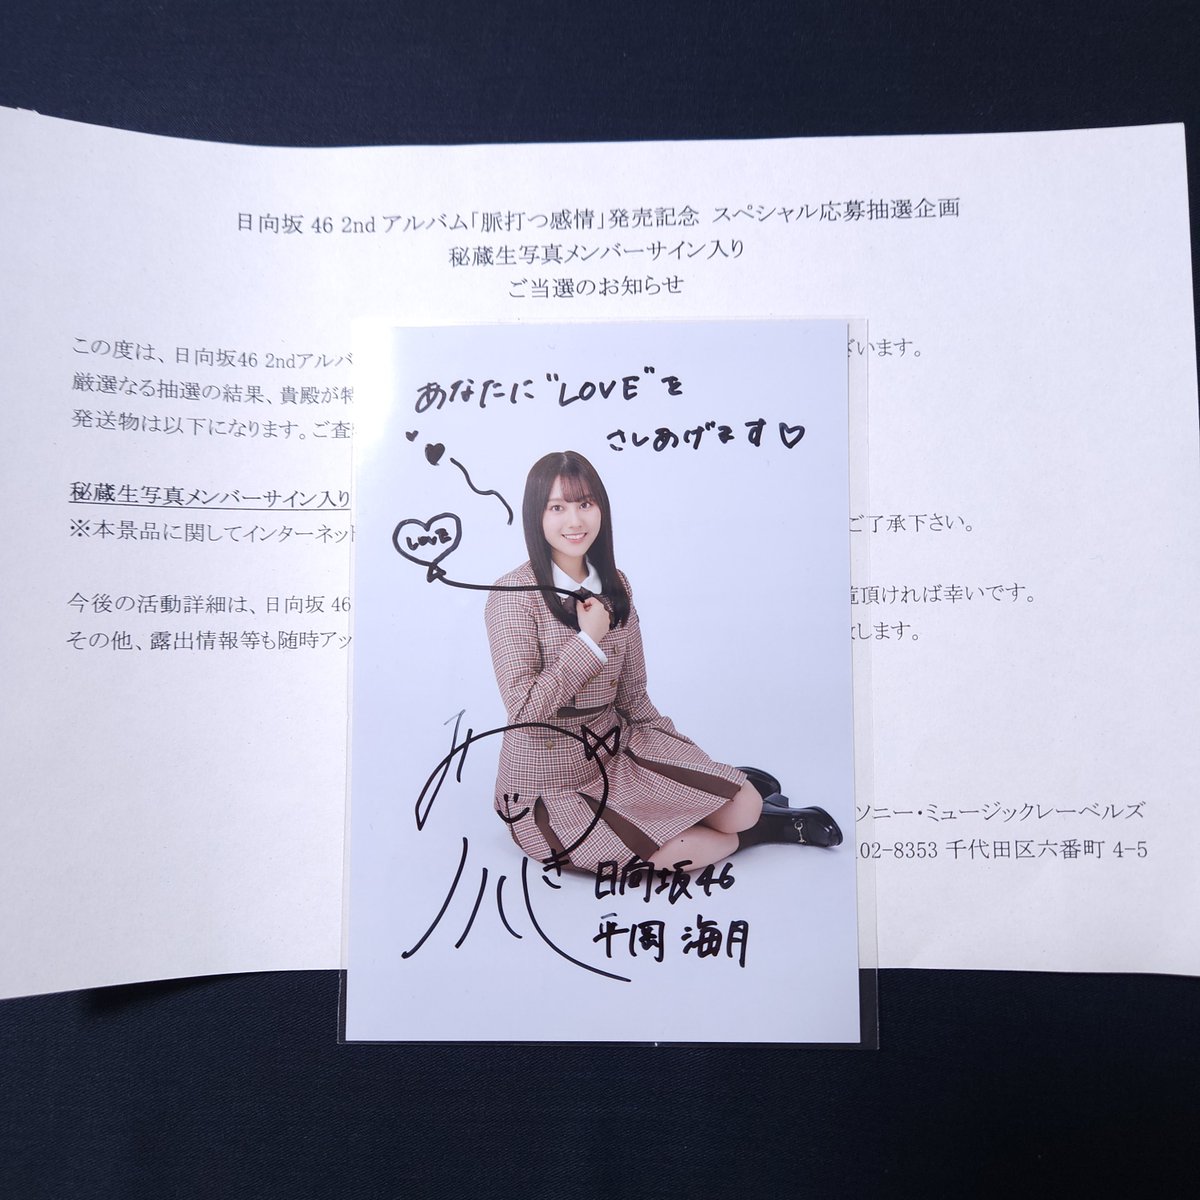 日向坂 46 2nd アルバム「脈打つ感情」発売記念 スペシャル応募抽選企画
秘蔵生写真メンバーサイン入り
ご当選のお知らせ
この度は、日向坂46 2ndアルバ
ざいます。
厳選なる抽選の結果、貴殿が特
発送物は以下になります。ご査
秘蔵生写真メンバーサイン入り
※本景品に関してインターネット
ご了承下さい。
今後の活動詳細は、日向坂 46
覧頂ければ幸いです。
その他、露出情報等も随時アッ
します。
ソニー・ミュージックレーベルズ
102-8353 千代田区六番町 4-5
あなたに"LOVE"を
さしあげます♡
LOVE
日向坂46
平岡 海月